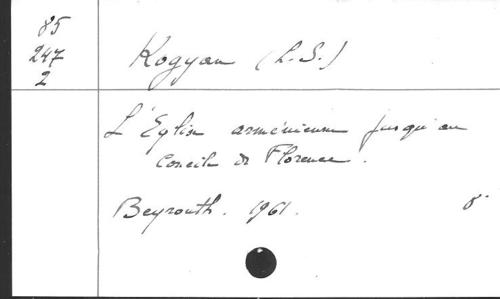 85
247
2
Kogyan (L.S.)
L'Eglise arménienne jusqu'au
Concile de Florence.
Beyrouth. 1961. 8°